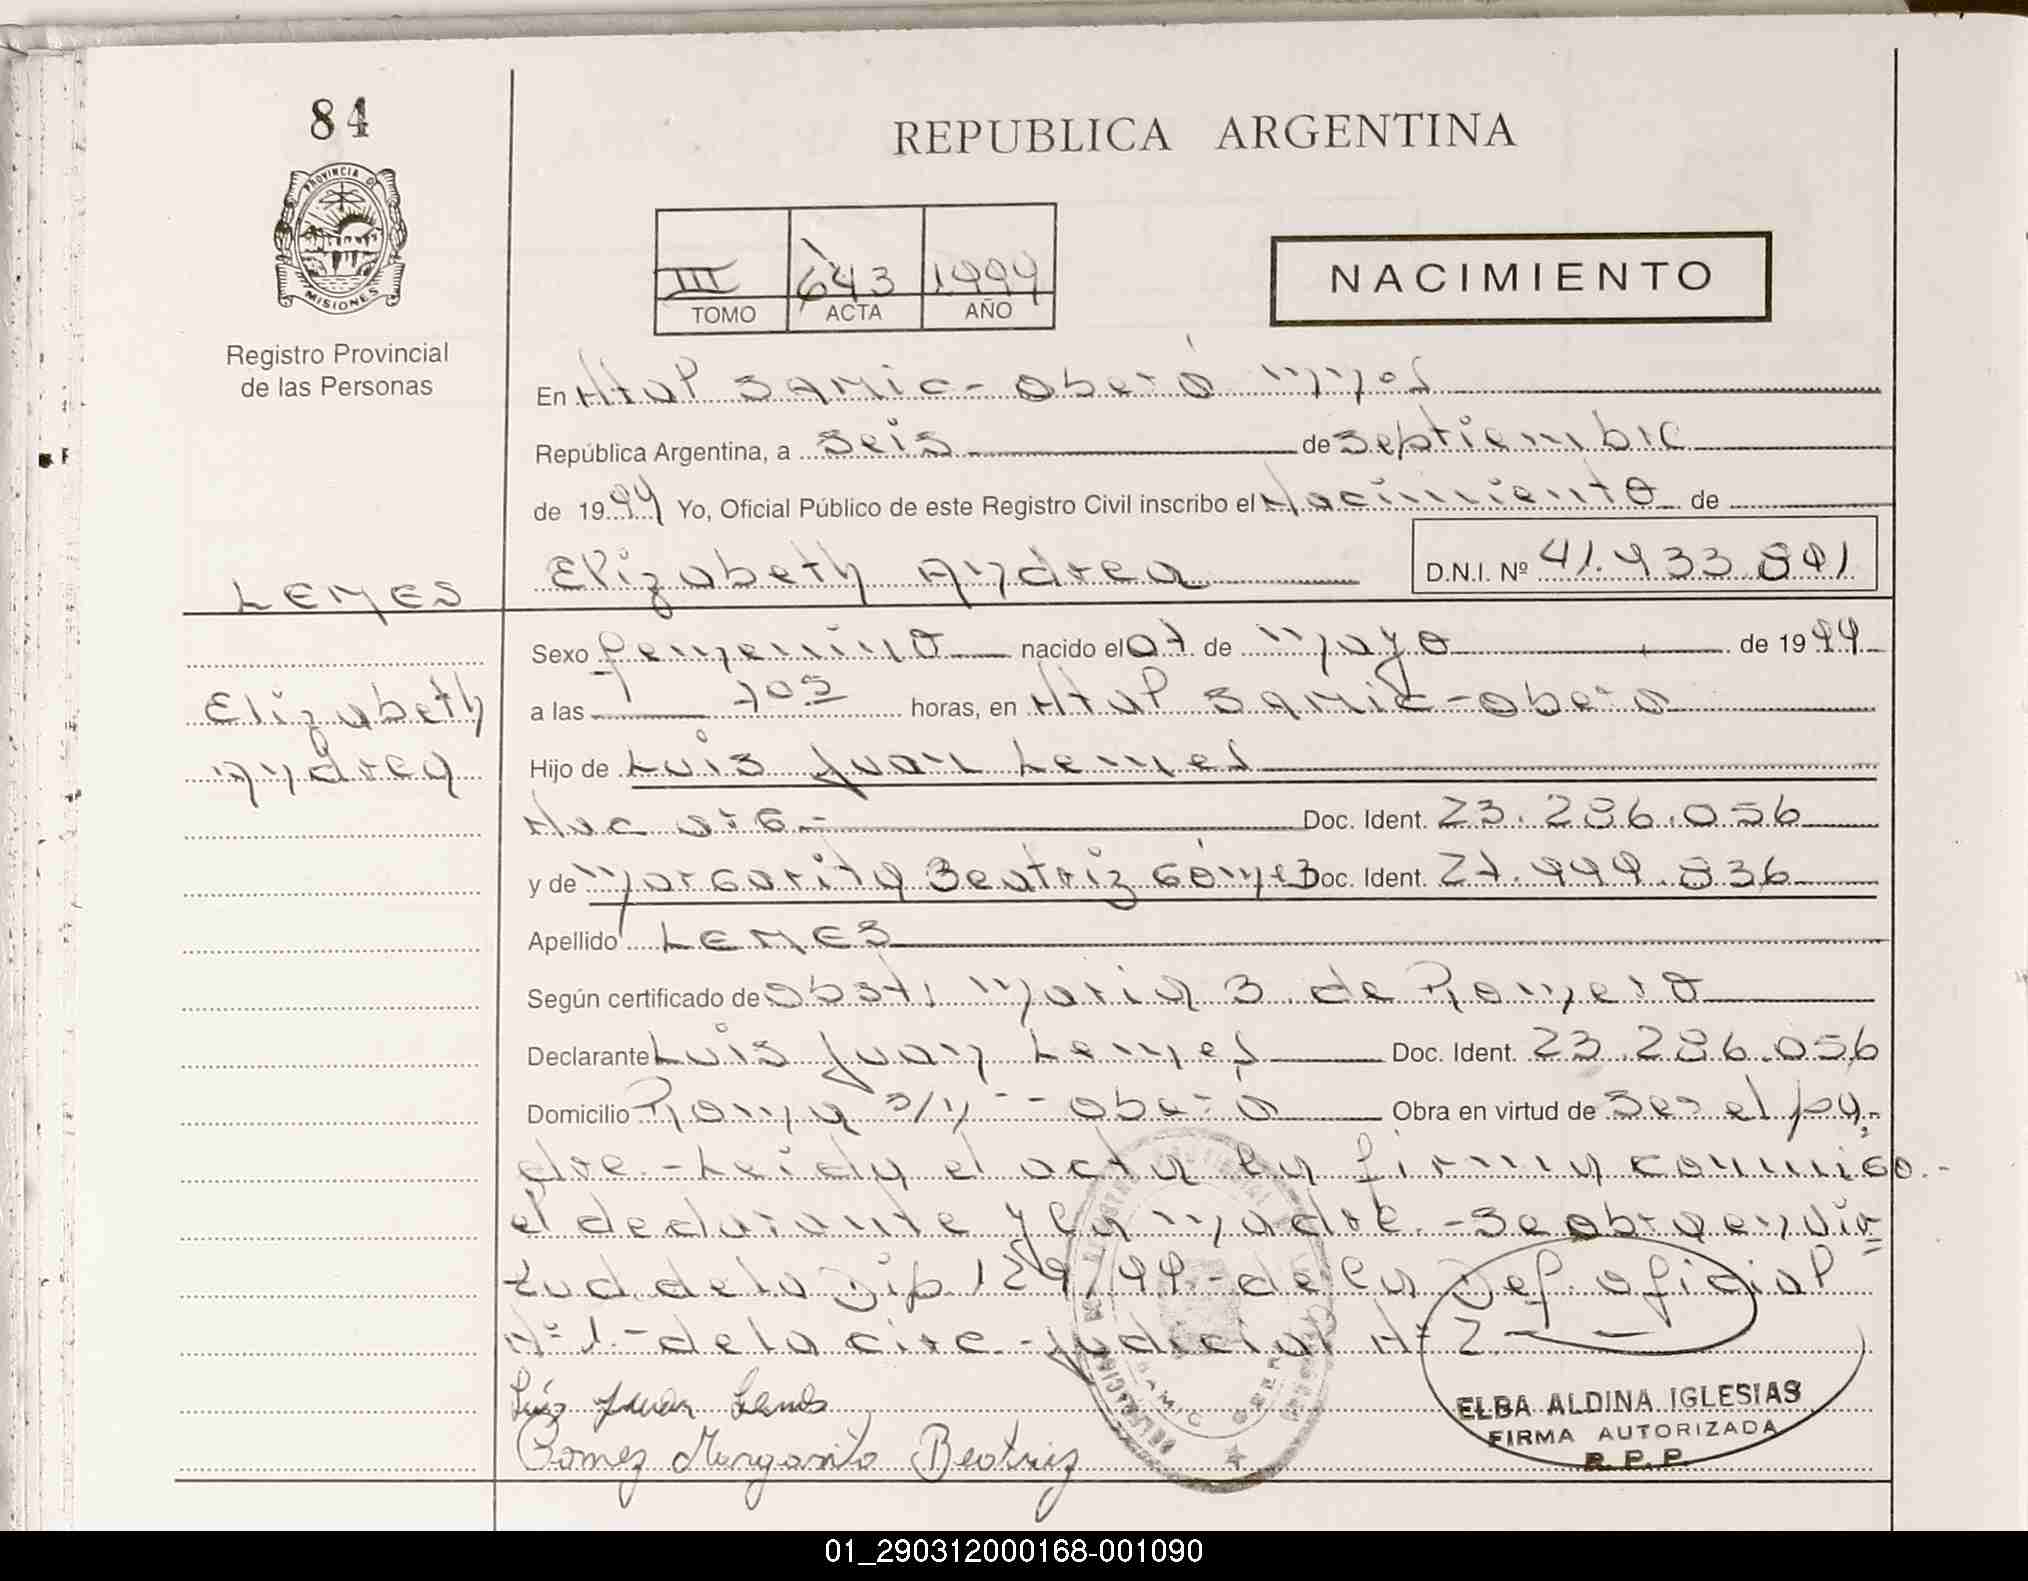 84
REPUBLICA ARGENTINA
PROVINCIA DE
MISIONES
Registro Provincial
de las Personas
III 643 1999
TOMO ACTA AÑO
NACIMIENTO
En Htal SAMIC - Oberá Mnes
República Argentina, a seis de septiembre
de 1999 Yo, Oficial Público de este Registro Civil inscribo el Nacimiento de
Elizabeth Andrea D.N.I. Nº 41.933.891
LEMES
Elizabeth
Andrea
Sexo femenino nacido el 07 de mayo de 1999
a las 705 horas, en Htal SAMIC - Oberá
Hijo de Luis Juan Lemes
Nac arg.- Doc. Ident. 23.286.056
y de Margarita Beatriz Gómez Doc. Ident. 27.999.836
Apellido LEMES
Según certificado de Obst. Maria B. de Romero
Declarante Luis Juan Lemes Doc. Ident. 23.286.056
Domicilio Roma s/n - Oberá Obra en virtud de ser el pa-
dre.- Leida el acta la firman conmigo.-
el declarante y la madre.- Se obra en vir=
tud de la Dip. 129/99 - de la Def. oficial
Nº 1.- de la circ. judicial Nº 2
Luiz Juan Lemes
Gomez Margarita Beatriz
ELBA ALDINA IGLESIAS
FIRMA AUTORIZADA
R. P. P.
01_290312000168-001090